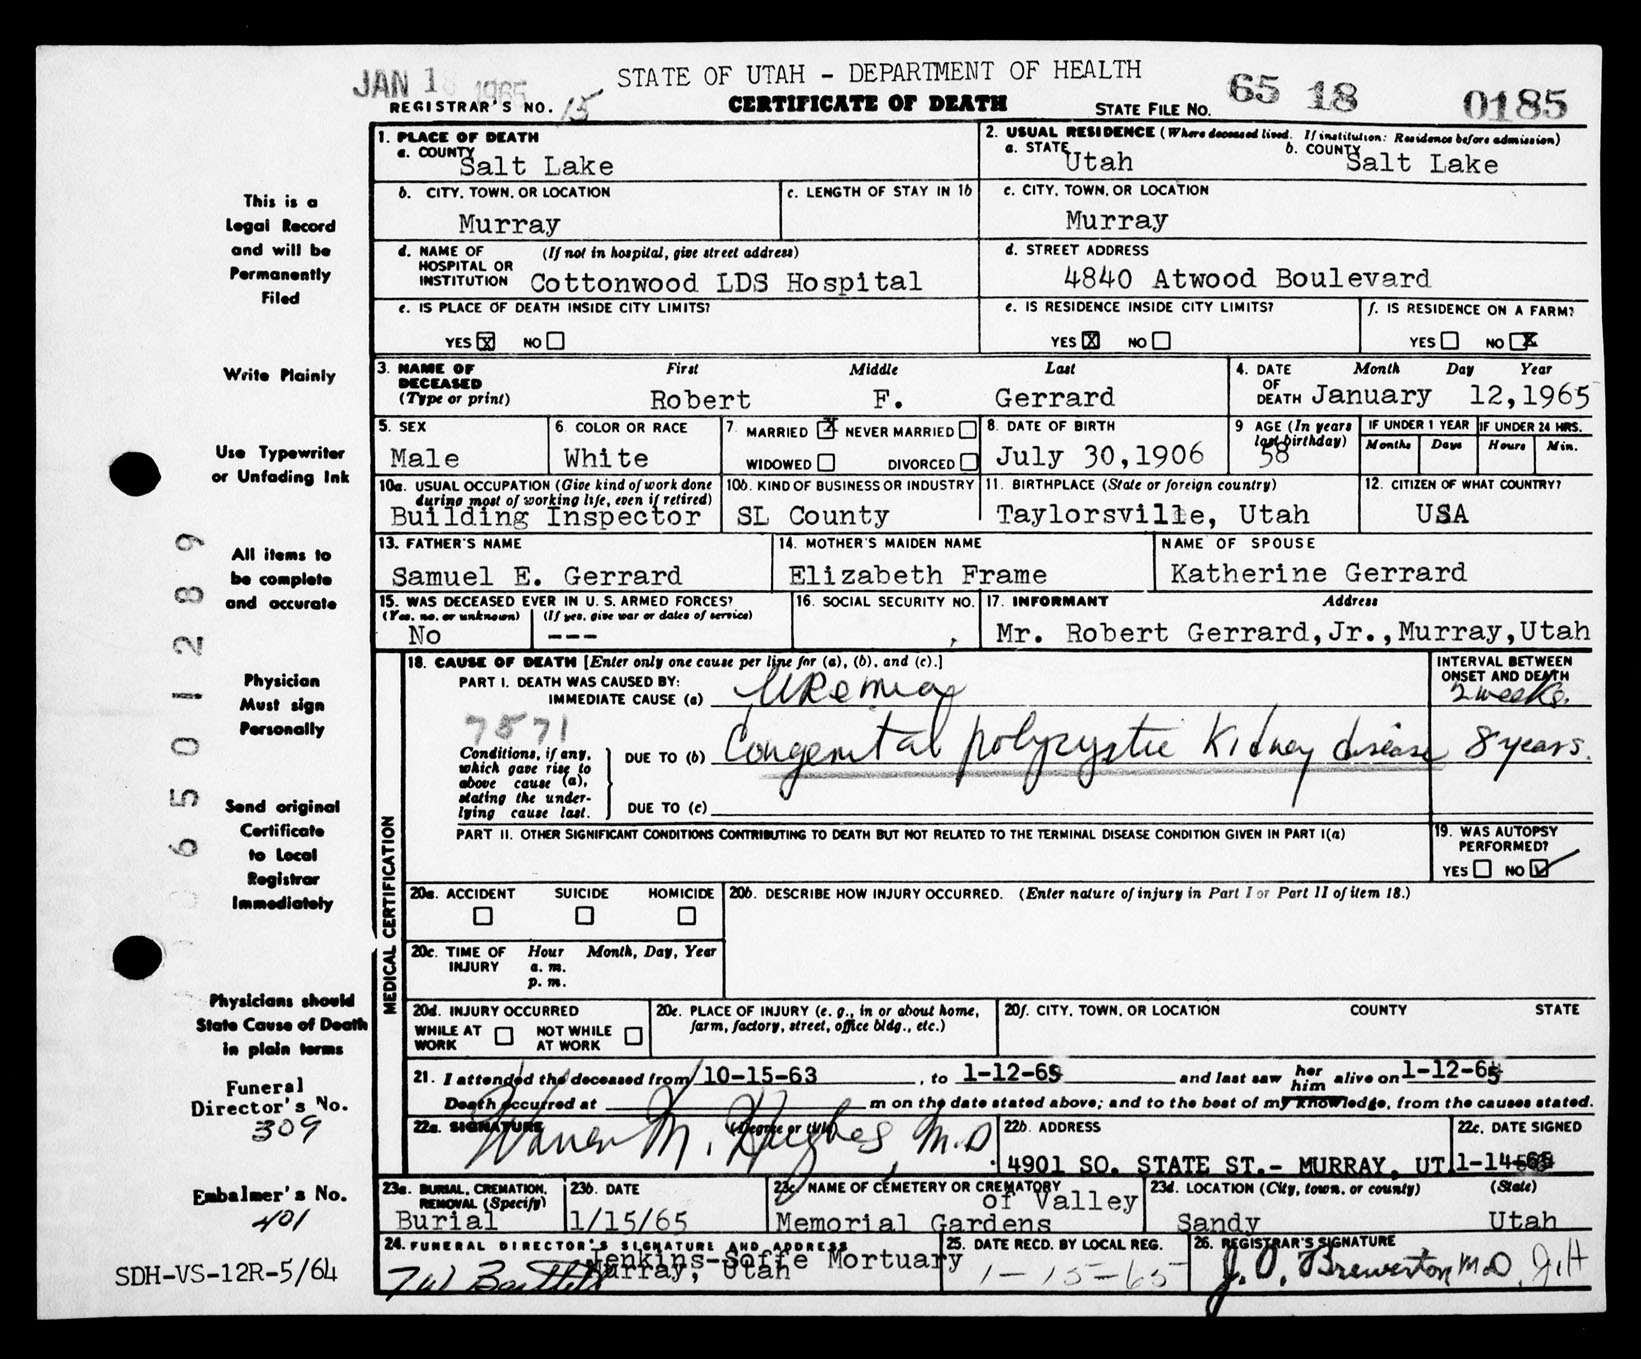 JAN 18 1965
STATE OF UTAH - DEPARTMENT OF HEALTH
REGISTRAR'S NO. 15 CERTIFICATE OF DEATH STATE FILE NO. 65 18 0185
This is a
Legal Record
and will be
Permanently
Filed
Write Plainly
Use Typewriter
or Unfading Ink
All items to
be complete
and accurate
Physician
Must sign
Personally
Send original
Certificate
to Local
Registrar
Immediately
Physicians should
State Cause of Death
in plain terms
Funeral
Director's No.
309
Embalmer's No.
401
SDH-VS-12R-5/64
6501289
1. PLACE OF DEATH
a. COUNTY
Salt Lake
2. USUAL RESIDENCE (Where deceased lived. If institution: Residence before admission)
a. STATE Utah b. COUNTY Salt Lake
b. CITY, TOWN, OR LOCATION
Murray
c. LENGTH OF STAY IN 1b
c. CITY, TOWN, OR LOCATION
Murray
d. NAME OF (If not in hospital, give street address)
HOSPITAL OR
INSTITUTION Cottonwood LDS Hospital
d. STREET ADDRESS
4840 Atwood Boulevard
e. IS PLACE OF DEATH INSIDE CITY LIMITS?
YES X NO
e. IS RESIDENCE INSIDE CITY LIMITS?
YES X NO
f. IS RESIDENCE ON A FARM?
YES NO X
3. NAME OF First Middle Last
DECEASED
(Type or print) Robert F. Gerrard
4. DATE Month Day Year
OF
DEATH January 12,1965
5. SEX
Male
6. COLOR OR RACE
White
7. MARRIED X NEVER MARRIED
WIDOWED DIVORCED
8. DATE OF BIRTH
July 30,1906
9 AGE (In years
last birthday)
58
IF UNDER 1 YEAR
Months Days
IF UNDER 24 HRS.
Hours Min.
10a. USUAL OCCUPATION (Give kind of work done
during most of working life, even if retired)
Building Inspector
10b. KIND OF BUSINESS OR INDUSTRY
SL County
11. BIRTHPLACE (State or foreign country)
Taylorsville, Utah
12. CITIZEN OF WHAT COUNTRY?
USA
13. FATHER'S NAME
Samuel E. Gerrard
14. MOTHER'S MAIDEN NAME
Elizabeth Frame
NAME OF SPOUSE
Katherine Gerrard
15. WAS DECEASED EVER IN U.S. ARMED FORCES?
(Yes, no, or unknown) (If yes, give war or dates of service)
No ---
16. SOCIAL SECURITY NO.
17. INFORMANT Address
Mr. Robert Gerrard,Jr.,Murray,Utah
MEDICAL CERTIFICATION
18. CAUSE OF DEATH [Enter only one cause per line for (a), (b), and (c).]
PART I. DEATH WAS CAUSED BY:
IMMEDIATE CAUSE (a) Uremia
INTERVAL BETWEEN
ONSET AND DEATH
2 weeks.
7571
Conditions, if any,
which gave rise to
above cause (a),
stating the under-
lying cause last.
DUE TO (b) Congenital polycystic Kidney disease 8 years.
DUE TO (c)
PART II. OTHER SIGNIFICANT CONDITIONS CONTRIBUTING TO DEATH BUT NOT RELATED TO THE TERMINAL DISEASE CONDITION GIVEN IN PART I(a)
19. WAS AUTOPSY
PERFORMED?
YES NO ✓
20a. ACCIDENT SUICIDE HOMICIDE
20b. DESCRIBE HOW INJURY OCCURRED. (Enter nature of injury in Part I or Part II of item 18.)
20c. TIME OF Hour Month, Day, Year
INJURY a. m.
p. m.
20d. INJURY OCCURRED
WHILE AT NOT WHILE
WORK AT WORK
20e. PLACE OF INJURY (e. g., in or about home,
farm, factory, street, office bldg., etc.)
20f. CITY, TOWN, OR LOCATION COUNTY STATE
21. I attended the deceased from 10-15-63, to 1-12-65 and last saw her him alive on 1-12-65
Death occurred at m on the date stated above; and to the best of my knowledge, from the causes stated.
22a. SIGNATURE (Degree or title)
Warren M. Hughes, M.D.
22b. ADDRESS
4901 SO. STATE ST.- MURRAY, UT
22c. DATE SIGNED
1-14-65
23a. BURIAL, CREMATION,
REMOVAL (Specify)
Burial
23b. DATE
1/15/65
23c. NAME OF CEMETERY OR CREMATORY
of Valley
Memorial Gardens
23d. LOCATION (City, town, or county) (State)
Sandy Utah
24. FUNERAL DIRECTOR'S SIGNATURE AND ADDRESS
Jenkins-Soffe Mortuary
Murray, Utah
25. DATE RECD. BY LOCAL REG.
1-15-65
26. REGISTRAR'S SIGNATURE
J. O. Brewerton M.D.